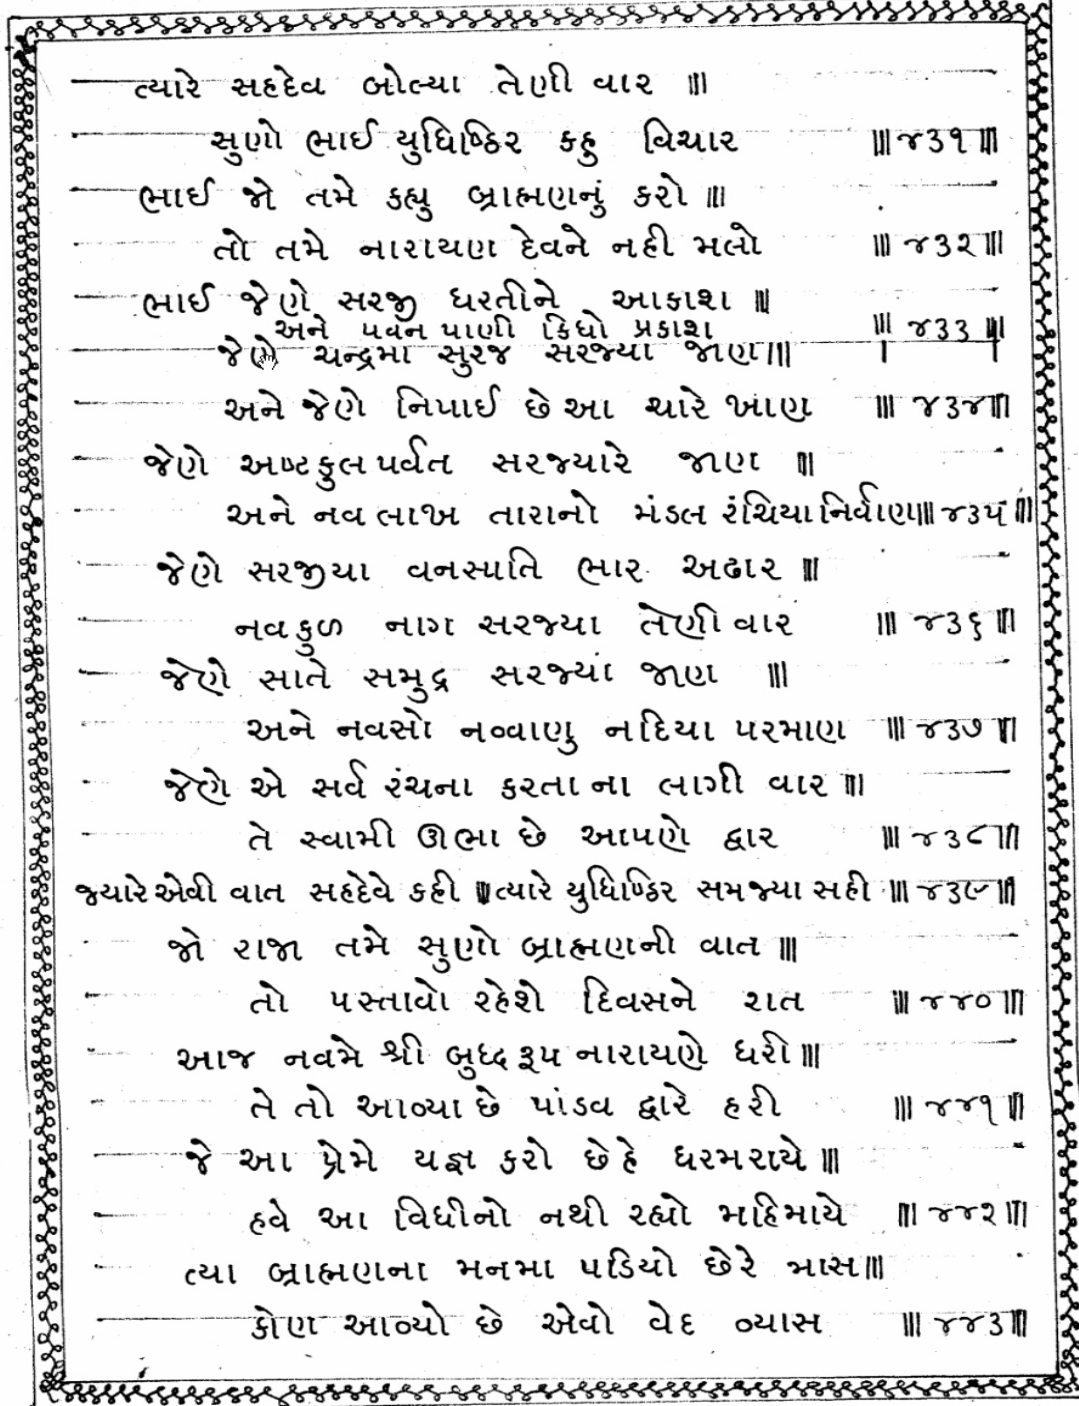 ત્યારે સહદેવ બોલ્યા તેણી વાર ॥
સુણો ભાઈ યુધિષ્ઠિર કહુ વિચાર ॥૪૩૧॥
ભાઈ જો તમે કહ્યુ બ્રાહ્મણનું કરો ॥
તો તમે નારાયણ દેવને નહી મલો ॥૪૩૨॥
ભાઈ જેણે સરજી ધરતીને આકાશ ॥
અને પવન પાણી કિધો પ્રકાશ ॥૪૩૩॥
જેણે ચન્દ્રમા સુરજ સરજ્યા જાણ॥
અને જેણે નિપાઈ છે આ ચારે ખાણ ॥૪૩૪॥
જેણે અષ્ટકુલ પર્વત સરજ્યારે જાણ ॥
અને નવ લાખ તારાનો મંડલ રંચિયા નિર્વાણ॥૪૩૫॥
જેણે સરજીયા વનસ્પતિ ભાર અઢાર ॥
નવકુળ નાગ સરજ્યા તેણી વાર ॥૪૩૬॥
જેણે સાતે સમુદ્ર સરજ્યાં જાણ ॥
અને નવસો નવ્વાણુ નદિયા પરમાણ ॥૪૩૭॥
જેણે એ સર્વ રંચના કરતા ના લાગી વાર ॥
તે સ્વામી ઊભા છે આપણે દ્વાર ॥૪૩૮॥
જ્યારે એવી વાત સહદેવે કહી ॥ત્યારે યુધિષ્ઠિર સમજ્યા સહી ॥૪૩૯॥
જો રાજા તમે સુણો બ્રાહ્મણની વાત ॥
તો પસ્તાવો રહેશે દિવસને રાત ॥૪૪૦॥
આજ નવમે શ્રી બુધ્ધ રૂપ નારાયણે ધરી॥
તે તો આવ્યા છે પાંડવ દ્વારે હરી ॥૪૪૧॥
જે આ પ્રેમે યજ્ઞ કરો છે હે ધરમરાયે ॥
હવે આ વિધીનો નથી રહ્યો મહિમાયે ॥૪૪૨॥
ત્યા બ્રાહ્મણના મનમા પડિયો છેરે ત્રાસ॥
કોણ આવ્યો છે એવો વેદ વ્યાસ ॥૪૪૩॥